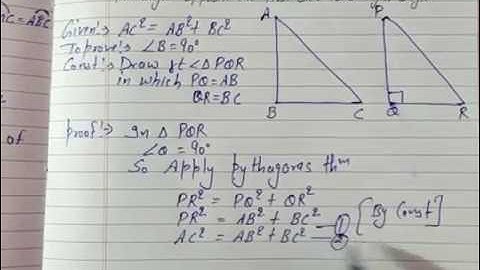 Given:- AC² = AB² + BC²
To prove:- ∠B = 90°
Const:- Draw rt ∠ΔPQR
in which PQ = AB
QR = BC
A
B
C
P
Q
R
proof:→ In Δ PQR
∠Q = 90°
So Apply pythagoras thm
PR² = PQ² + QR²
PR² = AB² + BC² — ① [By Const]
AC² = AB² + BC² — ②
of